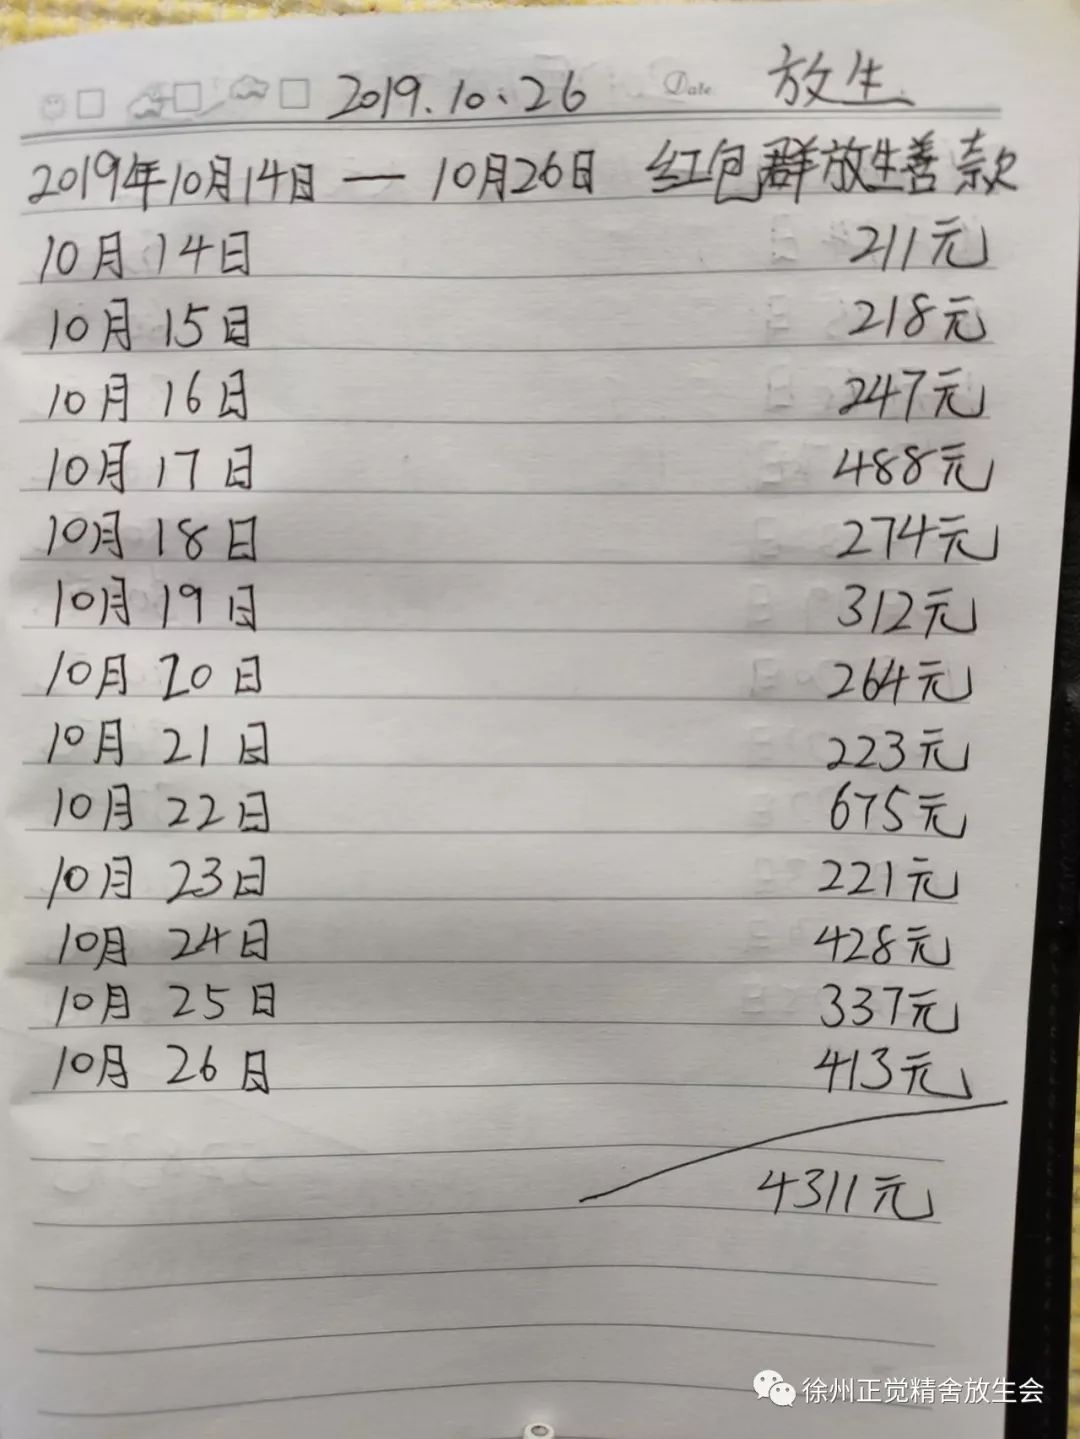 2019.10.26 Date 放生
2019年10月14日 — 10月26日 红包群放生善款
10月14日 211元
10月15日 218元
10月16日 247元
10月17日 488元
10月18日 274元
10月19日 312元
10月20日 264元
10月21日 223元
10月22日 675元
10月23日 221元
10月24日 428元
10月25日 337元
10月26日 413元
4311元
徐州正觉精舍放生会